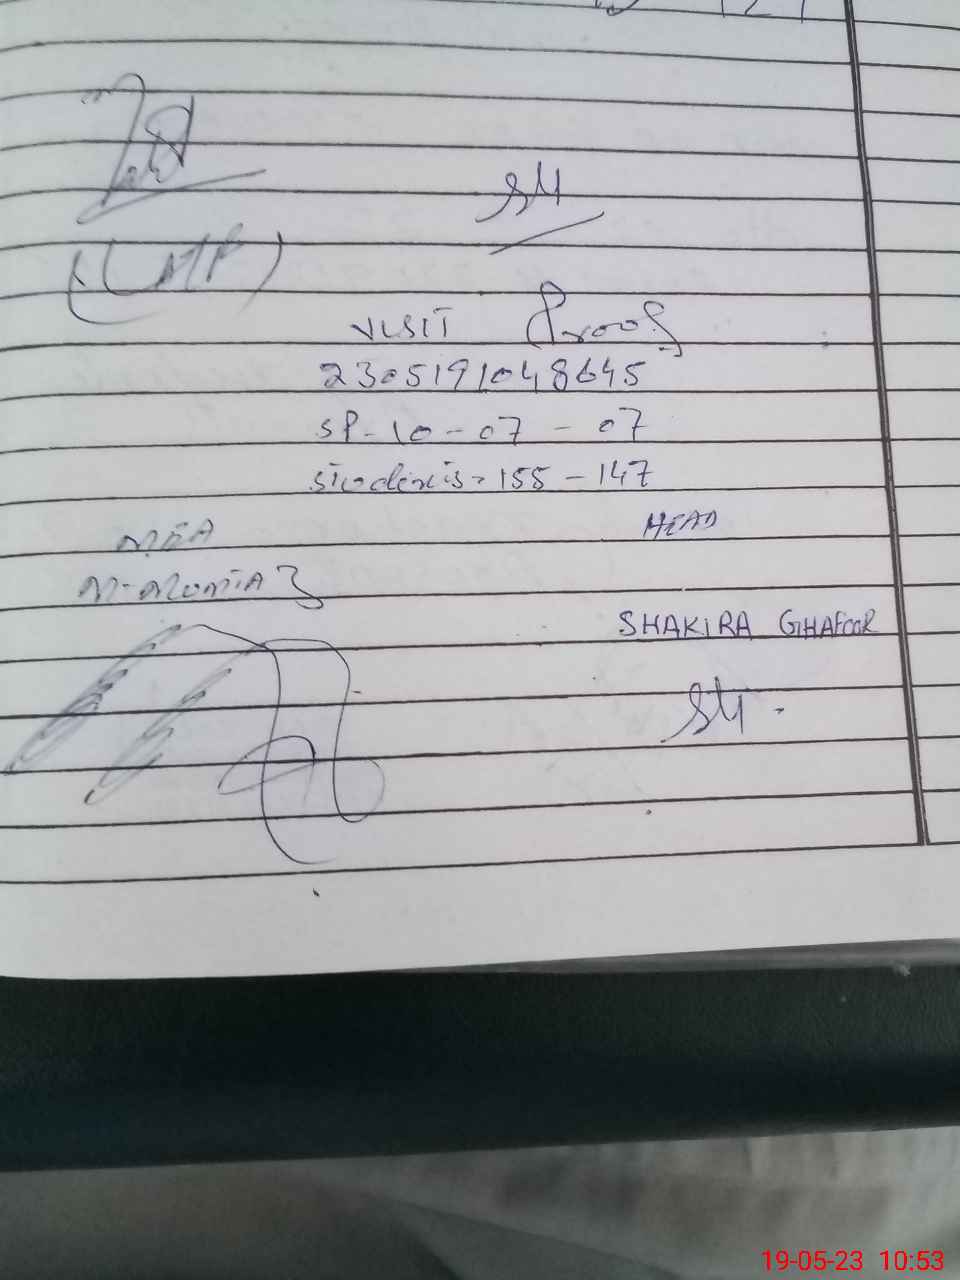 VISIT Proof
2305191048645
SP-10-07-07
students = 155-147
MEA
HEAD
M-MUMTAZ
SHAKIRA GHAFOOR
19-05-23 10:53